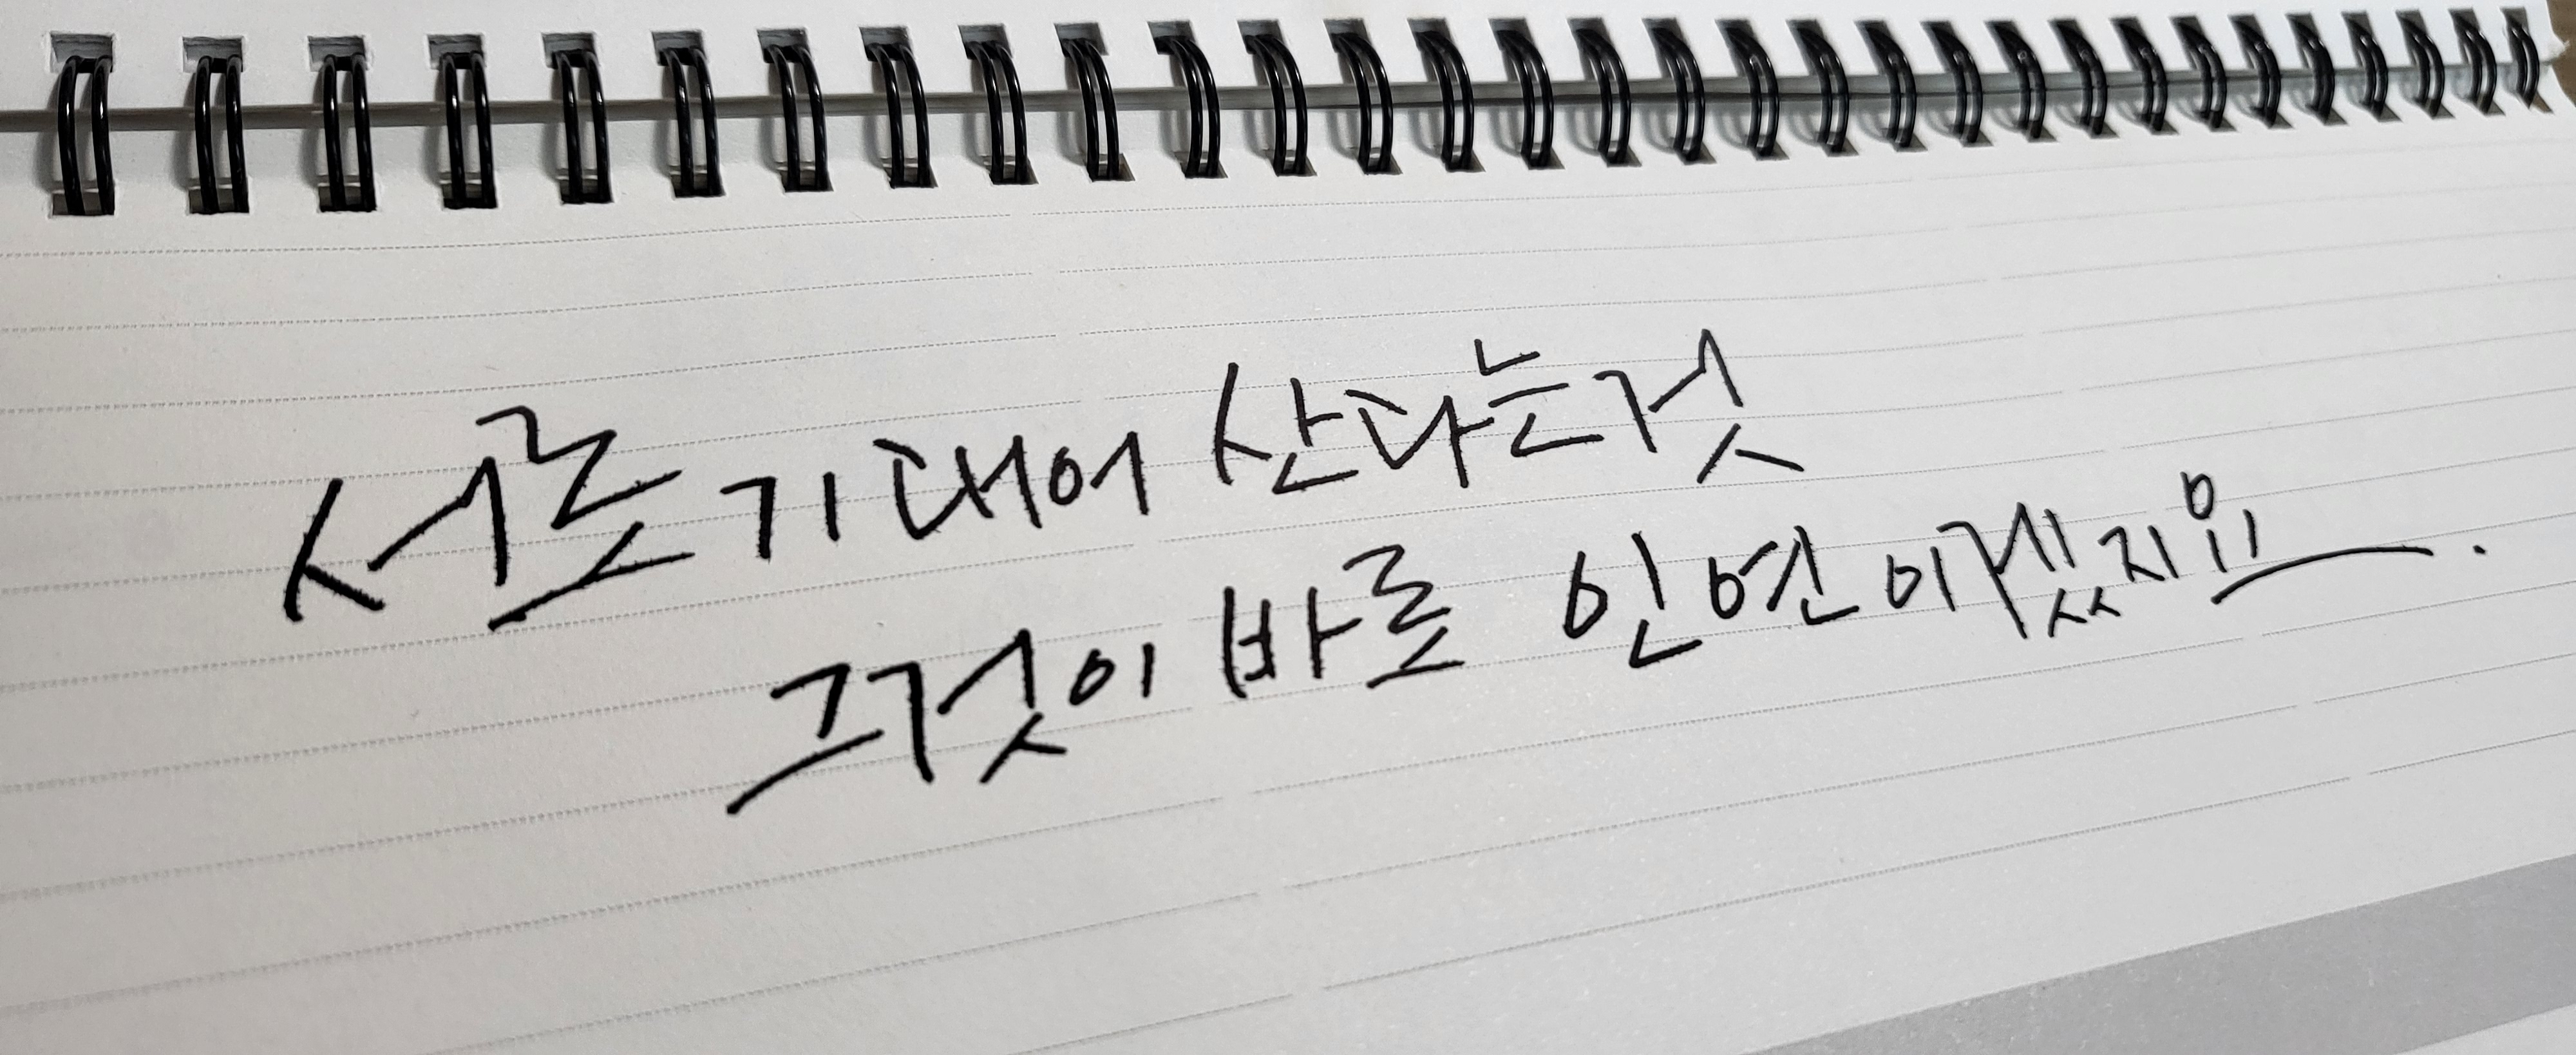 서로 기대어 산다는것
그것이 바로 인연이겠지요.